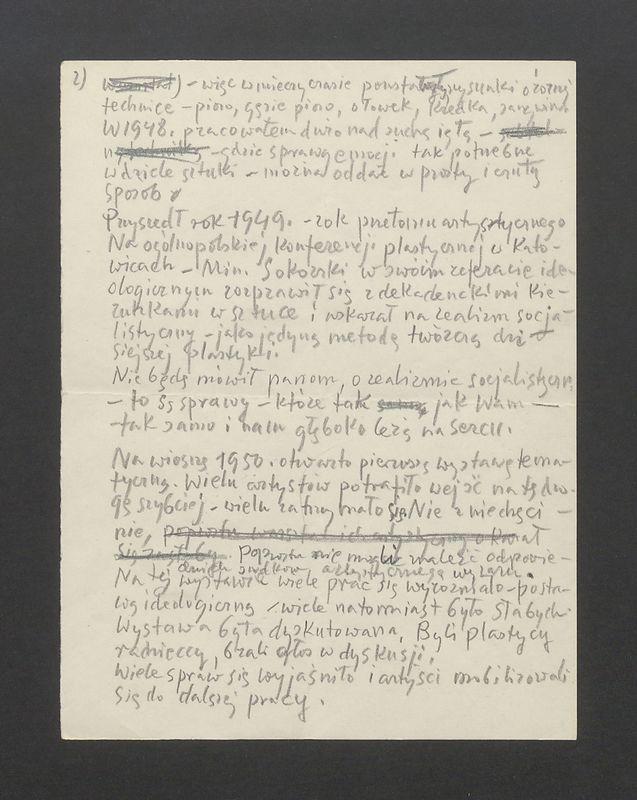 2) – więc w mięczyczasie powstały rysunki o różnej
technice – pióro, gęsie pióro, ołówek, kredka, sangwina
W 1948. pracowałem dużo nad suchą igłą –
– gdzie sprawę emocji tak potrzebne
w dziele sztuki – można oddać w prosty i czuły
sposób
Przyszedł rok 1949. – rok przełomu artystycznego
Na ogólnopolskiej konferencji plastycznej w Kato-
wicach – Min. Sokorski w swoim referacie ide-
ologicznym rozprawił się z dekadenckimi kie-
runkami w sztuce i wskazał na realizm socja-
listyczny – jako jedyną metodę twórczą dzi-
siejszej plastyki.
Nie będę mówił panom, o realizmie socjalistyczn.
– to są sprawy – które tak jak Wam –
tak samo i nam głęboko leżą na sercu.
Na wiosnę 1950. otwarto pierwszą wystawę tema-
tyczną. Wielu artystów potrafiło wejść na tę dro-
gę szybciej – wielu zatrzymało się. Nie z niechęci –
nie, poprostu warsztat ich artystyczny okazał
się
Poprostu nie mogli znaleźć odpowie-
dnich środków artystycznego wyrazu.
Na tej wystawie wiele prac się wyróżniało – posta-
wą ideologiczną, wiele natomiast było słabych.
Wystawa była dyskutowana, Byli plastycy
radzieccy, brali głos w dyskusji,
Wiele spraw się wyjaśniło i artyści mobilizowali
się do dalszej pracy.